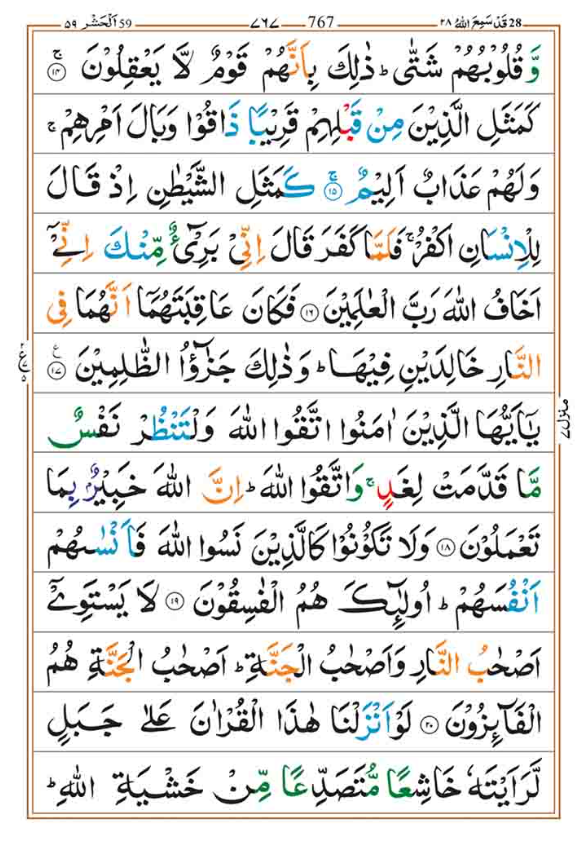 28 قَدْ سَمِعَ اللّٰهُ ۲۸ 767 ۷۶۷ 59 اَلْحَشْر ۵۹
وَّ قُلُوْبُهُمْ شَتّٰىؕ ذٰلِكَ بِاَنَّهُمْ قَوْمٌ لَّا يَعْقِلُوْنَۚ‏ ﴿۱۴﴾
كَمَثَلِ الَّذِيْنَ مِنْ قَبْلِهِمْ قَرِيْبًا ذَاقُوْا وَبَالَ اَمْرِهِمْۚ
وَلَهُمْ عَذَابٌ اَلِيْمٌۚ‏ ﴿۱۵﴾ كَمَثَلِ الشَّيْطٰنِ اِذْ قَالَ
لِلْاِنْسَانِ اكْفُرْۚ فَلَمَّا كَفَرَ قَالَ اِنِّىْ بَرِىْٓءٌ مِّنْكَ اِنِّىْۤ
اَخَافُ اللّٰهَ رَبَّ الْعٰلَمِيْنَ‏ ﴿۱۶﴾ فَكَانَ عَاقِبَتَهُمَاۤ اَنَّهُمَا فِى
النَّارِ خَالِدَيْنِ فِيْهَاؕ وَذٰلِكَ جَزٰٓؤُا الظّٰلِمِيْنَ ﴿۱۷﴾ ع
يٰۤاَيُّهَا الَّذِيْنَ اٰمَنُوا اتَّقُوا اللّٰهَ وَلْتَنْظُرْ نَفْسٌ
مَّا قَدَّمَتْ لِغَدٍۚ وَاتَّقُوا اللّٰهَؕ اِنَّ اللّٰهَ خَبِيْرٌۢ بِمَا
تَعْمَلُوْنَ‏ ﴿۱۸﴾ وَلَا تَكُوْنُوْا كَالَّذِيْنَ نَسُوا اللّٰهَ فَاَنْسٰٮهُمْ
اَنْفُسَهُمْؕ اُولٰٓئِكَ هُمُ الْفٰسِقُوْنَ‏ ﴿۱۹﴾ لَا يَسْتَوِىْۤ
اَصْحٰبُ النَّارِ وَاَصْحٰبُ الْجَنَّةِؕ اَصْحٰبُ الْجَنَّةِ هُمُ
الْفَآئِزُوْنَ‏ ﴿۲۰﴾ لَوْ اَنْزَلْنَا هٰذَا الْقُرْاٰنَ عَلٰى جَبَلٍ
لَّرَاَيْتَهٗ خَاشِعًا مُّتَصَدِّعًا مِّنْ خَشْيَةِ اللّٰهِؕ
منزل ۷